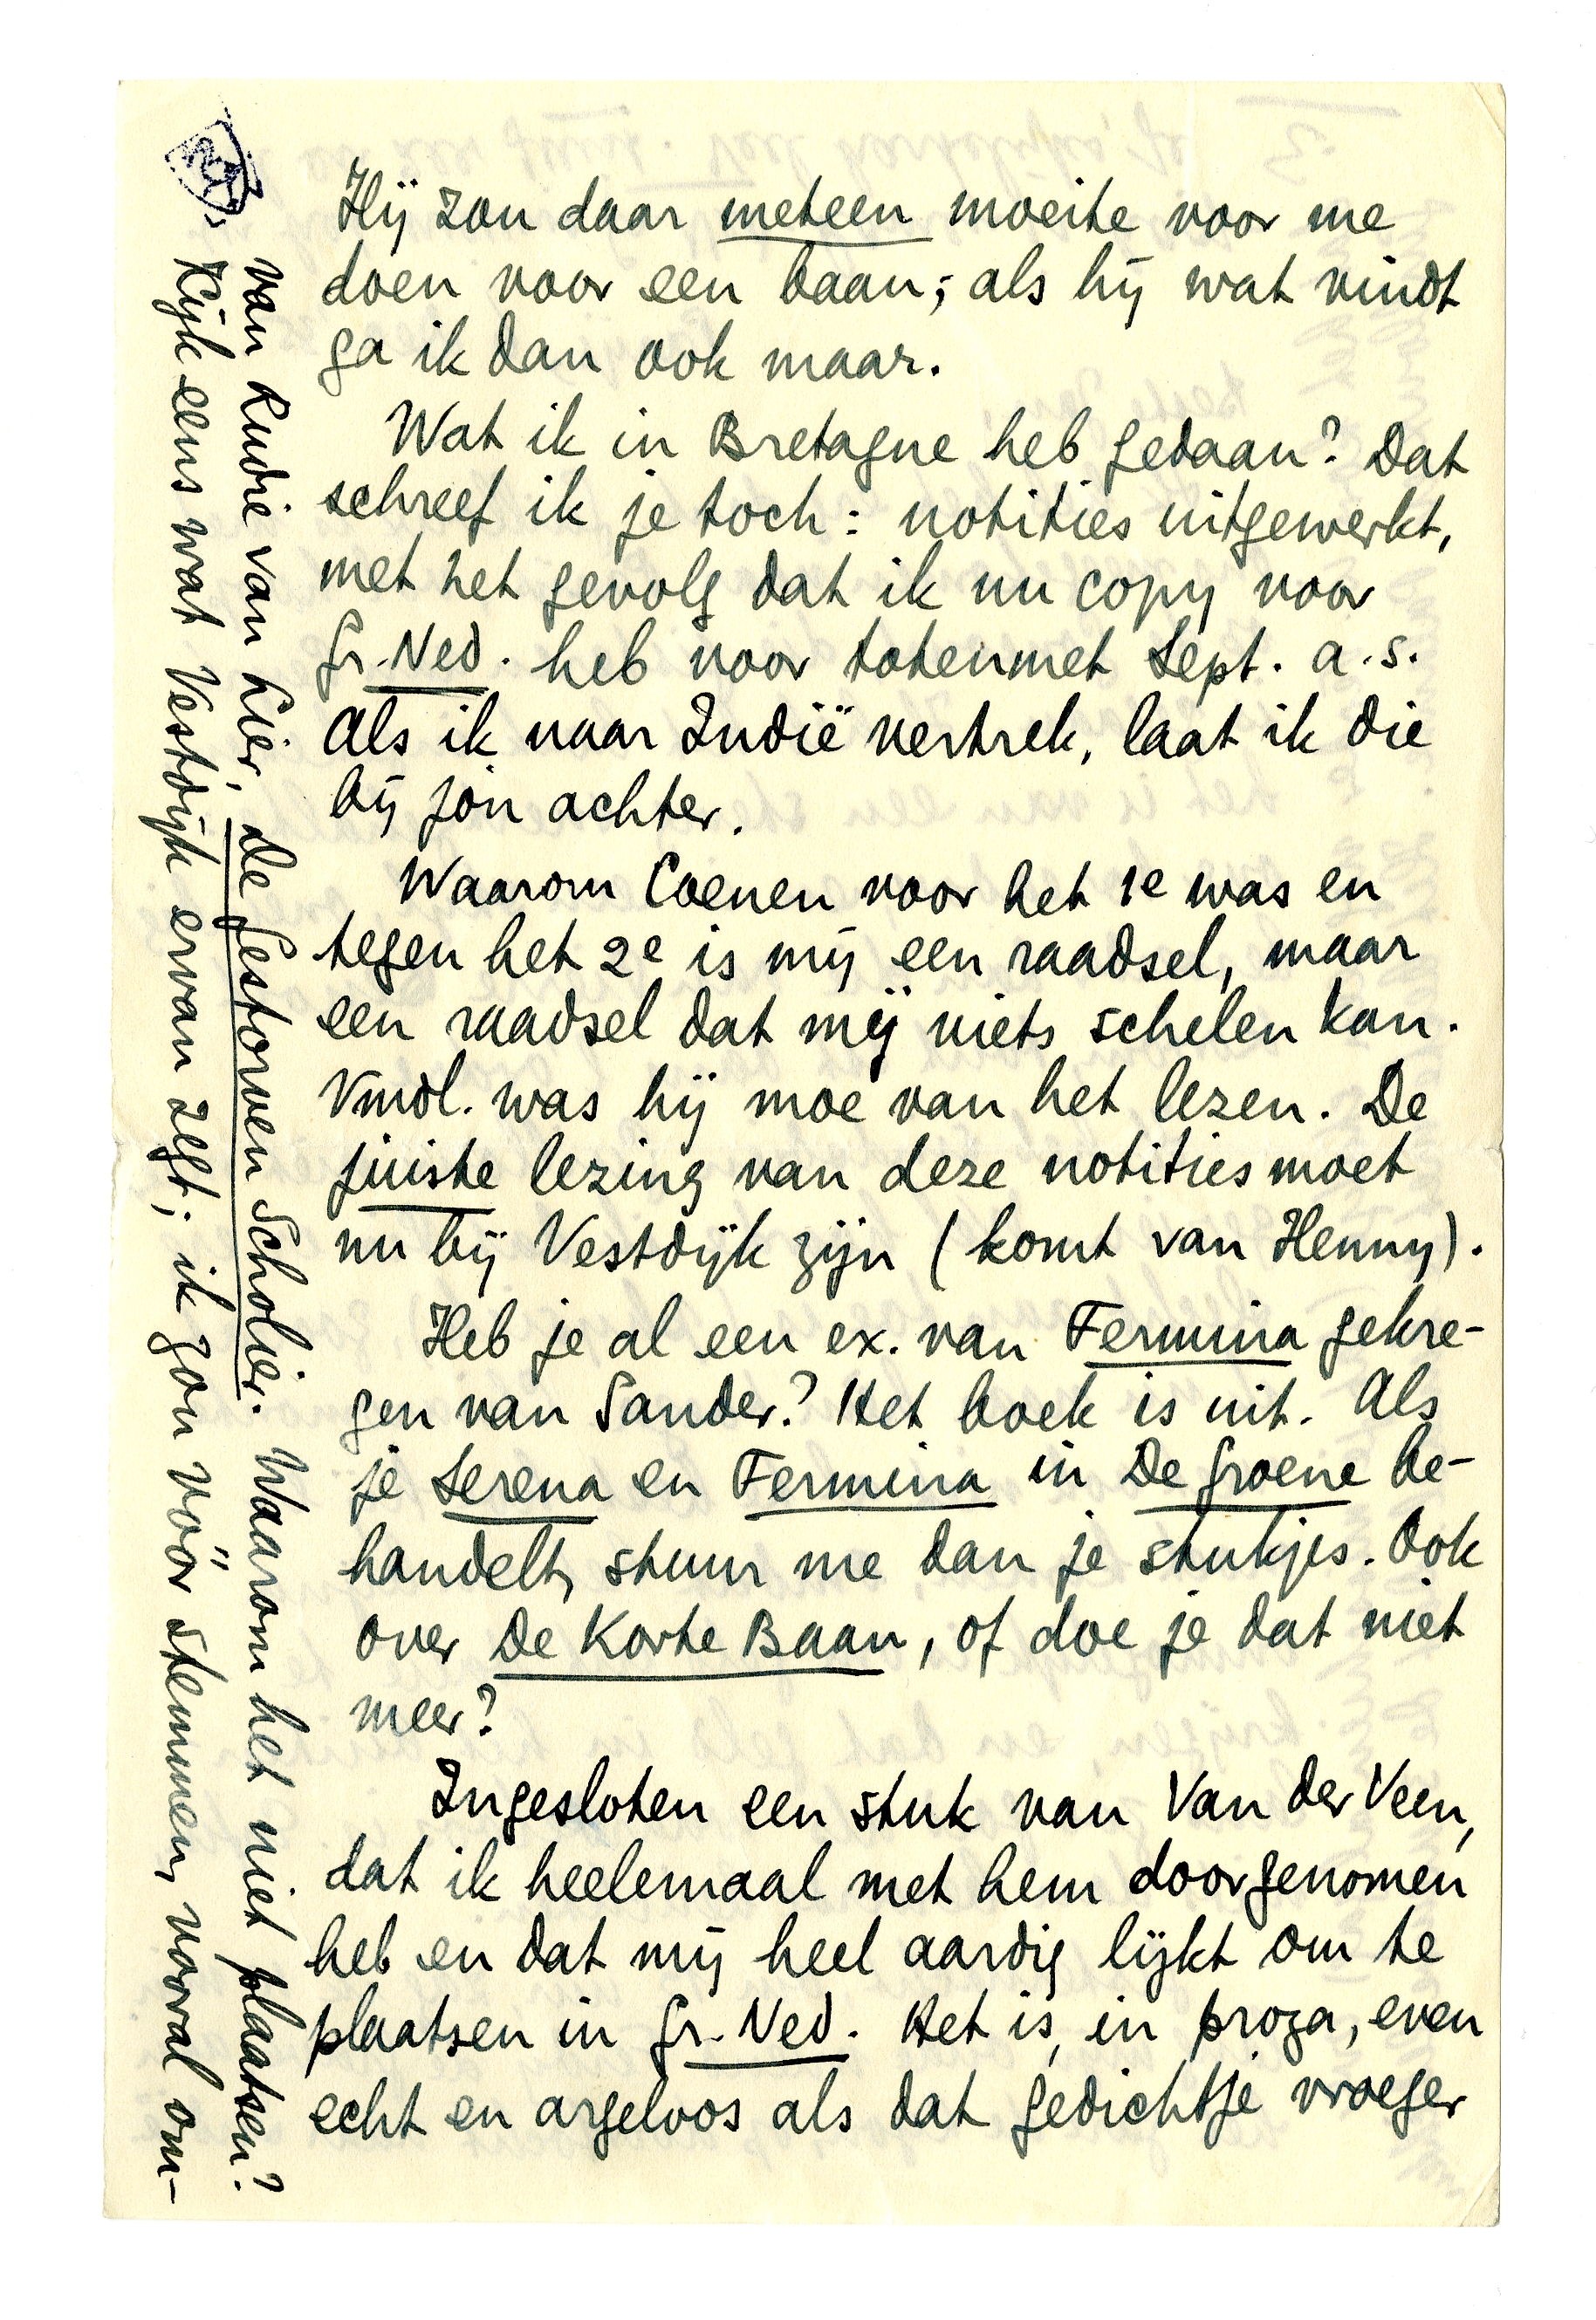 Hij zou daar meteen moeite voor me
doen voor een baan; als hij wat vindt
ga ik dan ook maar.
Wat ik in Bretagne heb gedaan? Dat
schreef ik je toch: notities uitgewerkt,
met het gevolg dat ik nu copy voor
Gr. Ned. heb voor totenmet Sept. a.s.
Als ik naar Indië vertrek, laat ik die
bij jou achter.
Waarom Coenen voor het 1e was en
tegen het 2e is mij een raadsel, maar
een raadsel dat mij niets schelen kan.
Vmdl. was hij moe van het lezen. De
juiste lezing van deze notities moet
nu bij Vestdijk zijn (komt van Henny).
Heb je al een ex. van Fermina gekre-
gen van Sander? Het boek is uit. Als
je Serena en Fermina in De Groene be-
handelt, stuur me dan je stukjes. Ook
over De Korte Baan, of doe je dat niet
meer?
Ingesloten een stuk van Van der Veen,
dat ik heelemaal met hem doorgenomen
heb en dat mij heel aardig lijkt om te
plaatsen in Gr. Ned. Het is, in proza, even
echt en argeloos als dat gedichtje vroeger
van Rudie van Lier, De Gestorven Scholier. Waarom het niet plaatsen?
Kijk eens wat Vestdijk ervan zegt; ik zou vóór stemmen, vooral om-